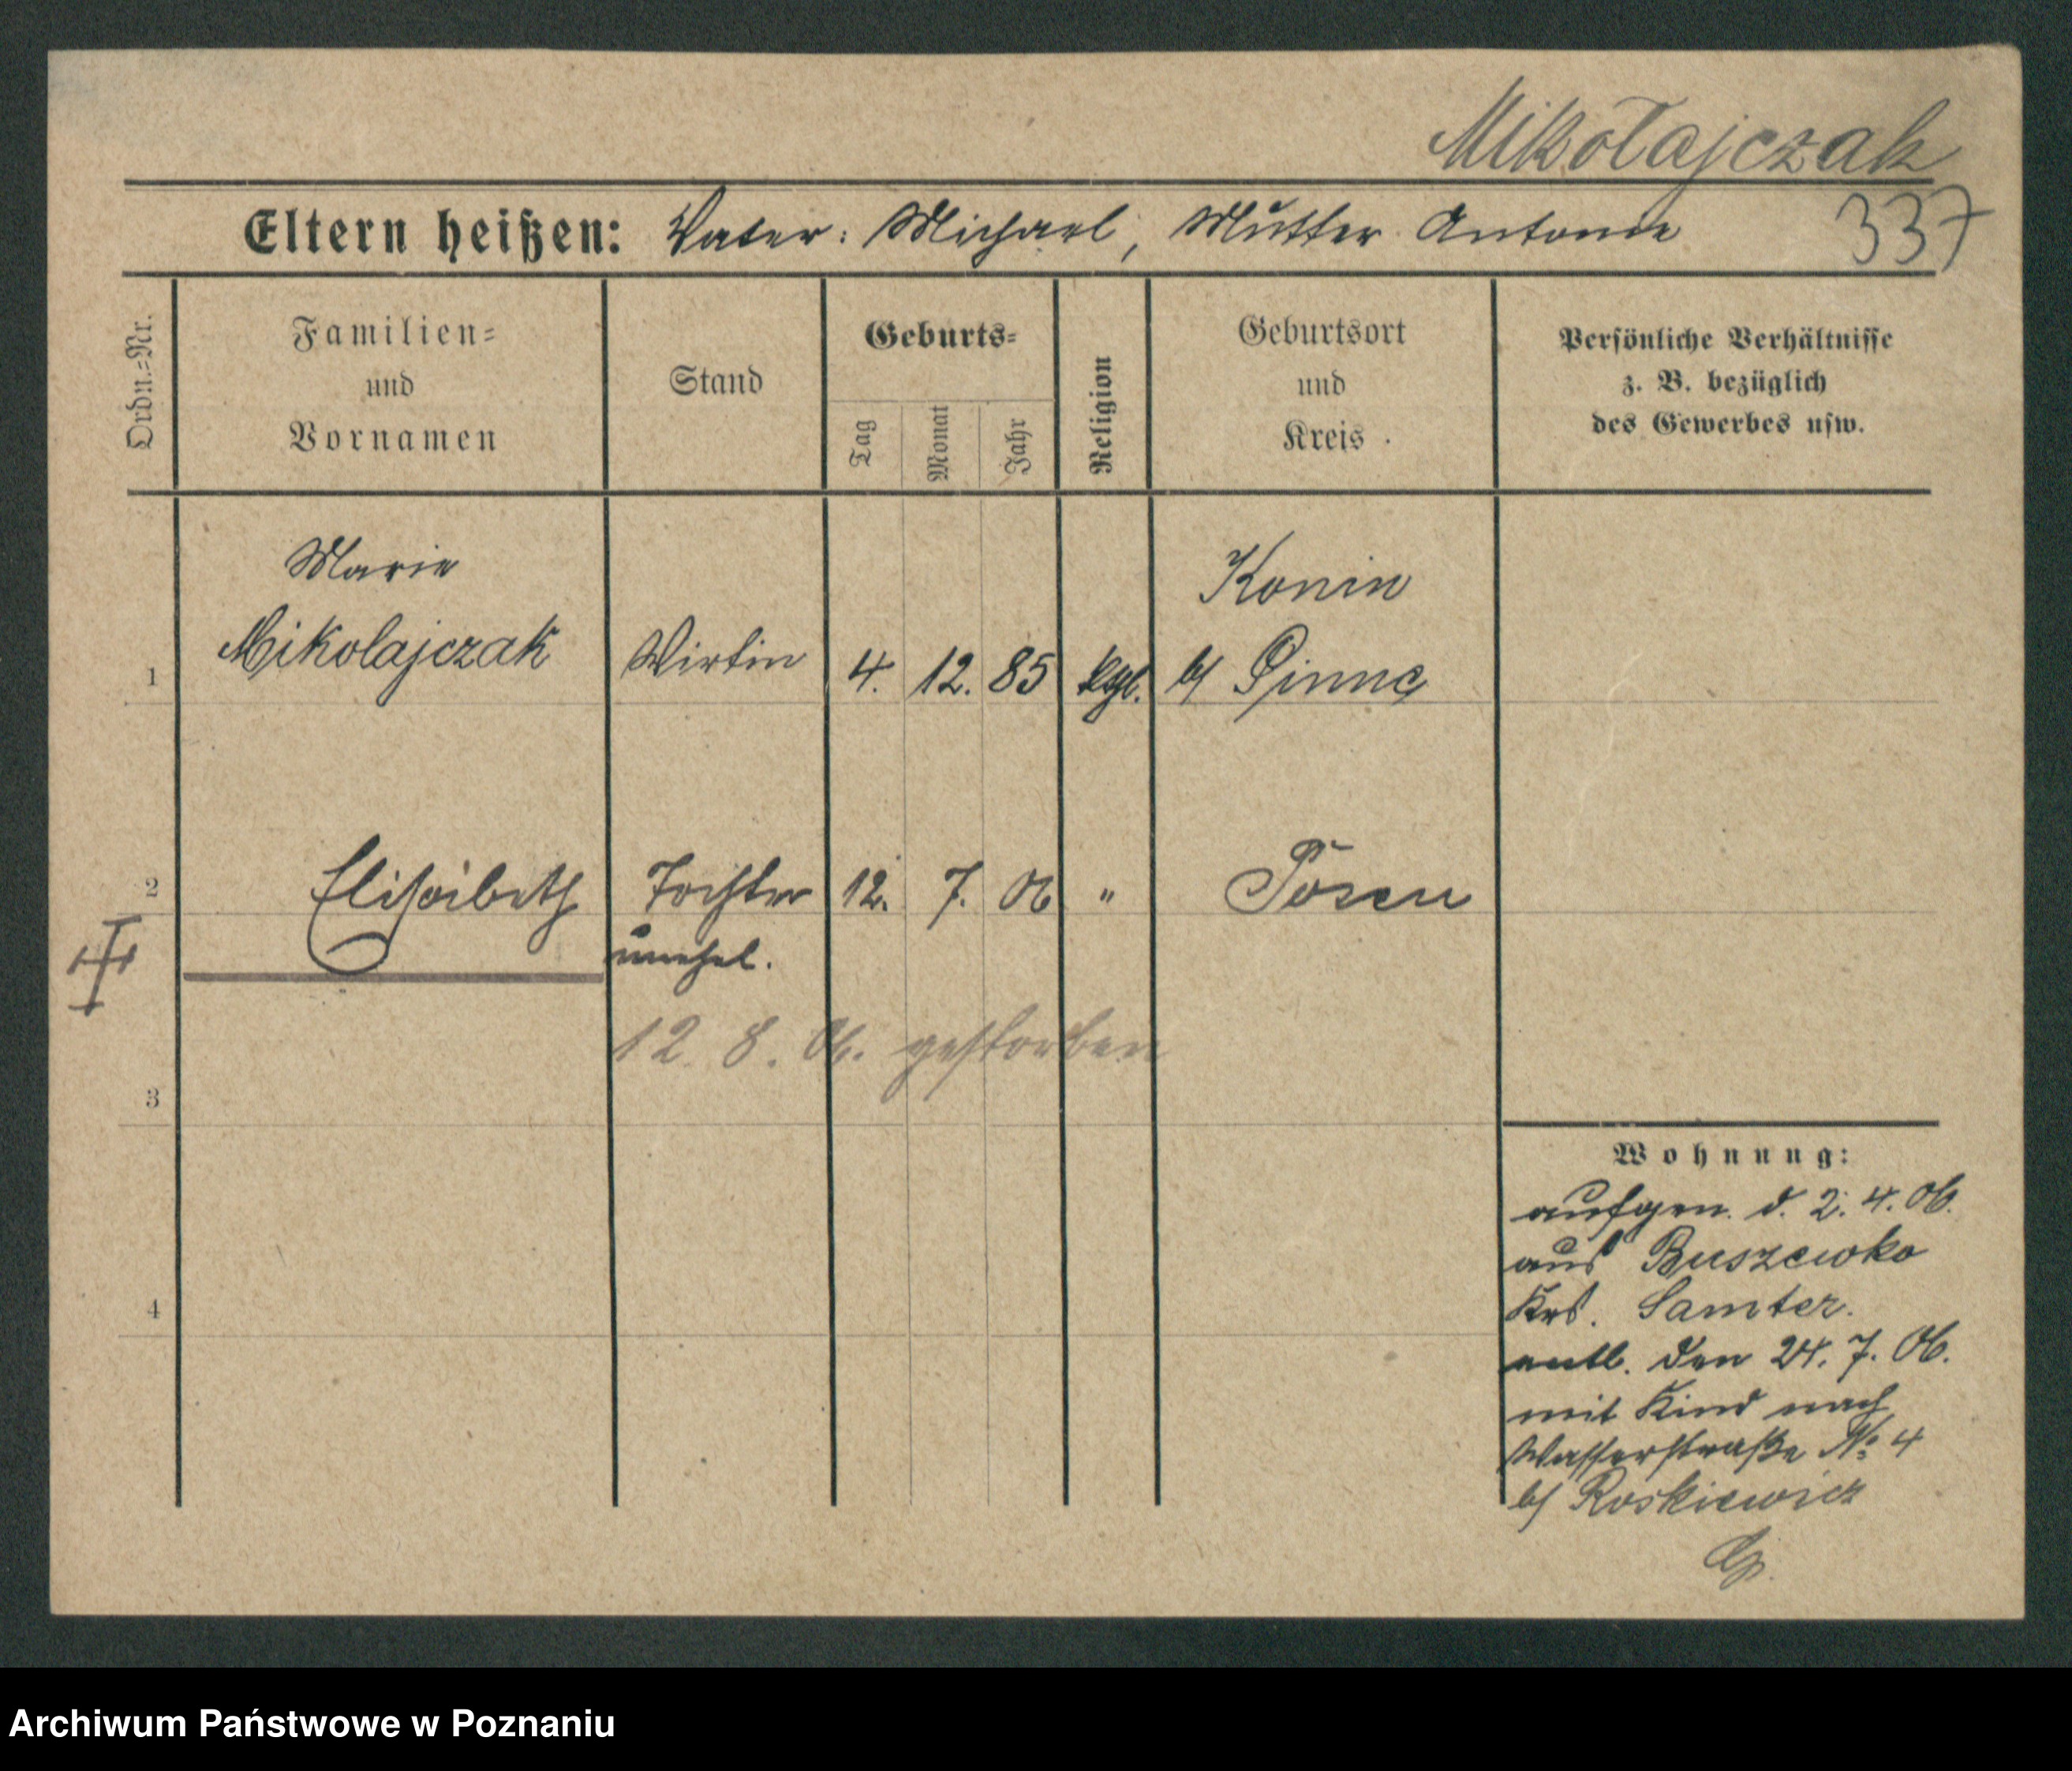 Mikołajczak
Eltern heißen: Vater: Michael, Mutter Antonie
337
Ordn.=Nr.
Familien=
und
Vornamen
Stand
Geburts=
Tag
Monat
Jahr
Religion
Geburtsort
und
Kreis
Persönliche Verhältnisse
z. B. bezüglich
des Gewerbes usw.
Marie
Konin
1 Mikolajczak Wirtin 4. 12. 85 ktgl. b/ Pinne
2 Elisabeth Tochter 12. 7. 06 " Posen
unehel.
12. 8. 06. gestorben
3
4
Wohnung:
aufgen. d. 2. 4. 06.
aus Buszewko
Krs. Samter.
entl. den 24. 7. 06.
mit Kind nach
Wasserstraße No 4
b/ Roskiewicz
Archiwum Państwowe w Poznaniu